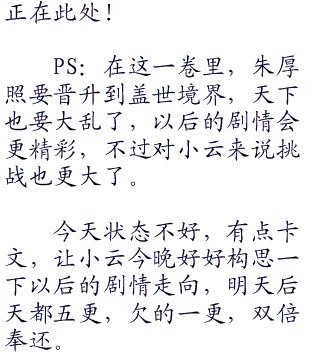 正在此处！
PS：在这一卷里，朱厚
照要晋升到盖世境界，天下
也要大乱了，以后的剧情会
更精彩，不过对小云来说挑
战也更大了。
今天状态不好，有点卡
文，让小云今晚好好构思一
下以后的剧情走向，明天后
天都五更，欠的一更，双倍
奉还。